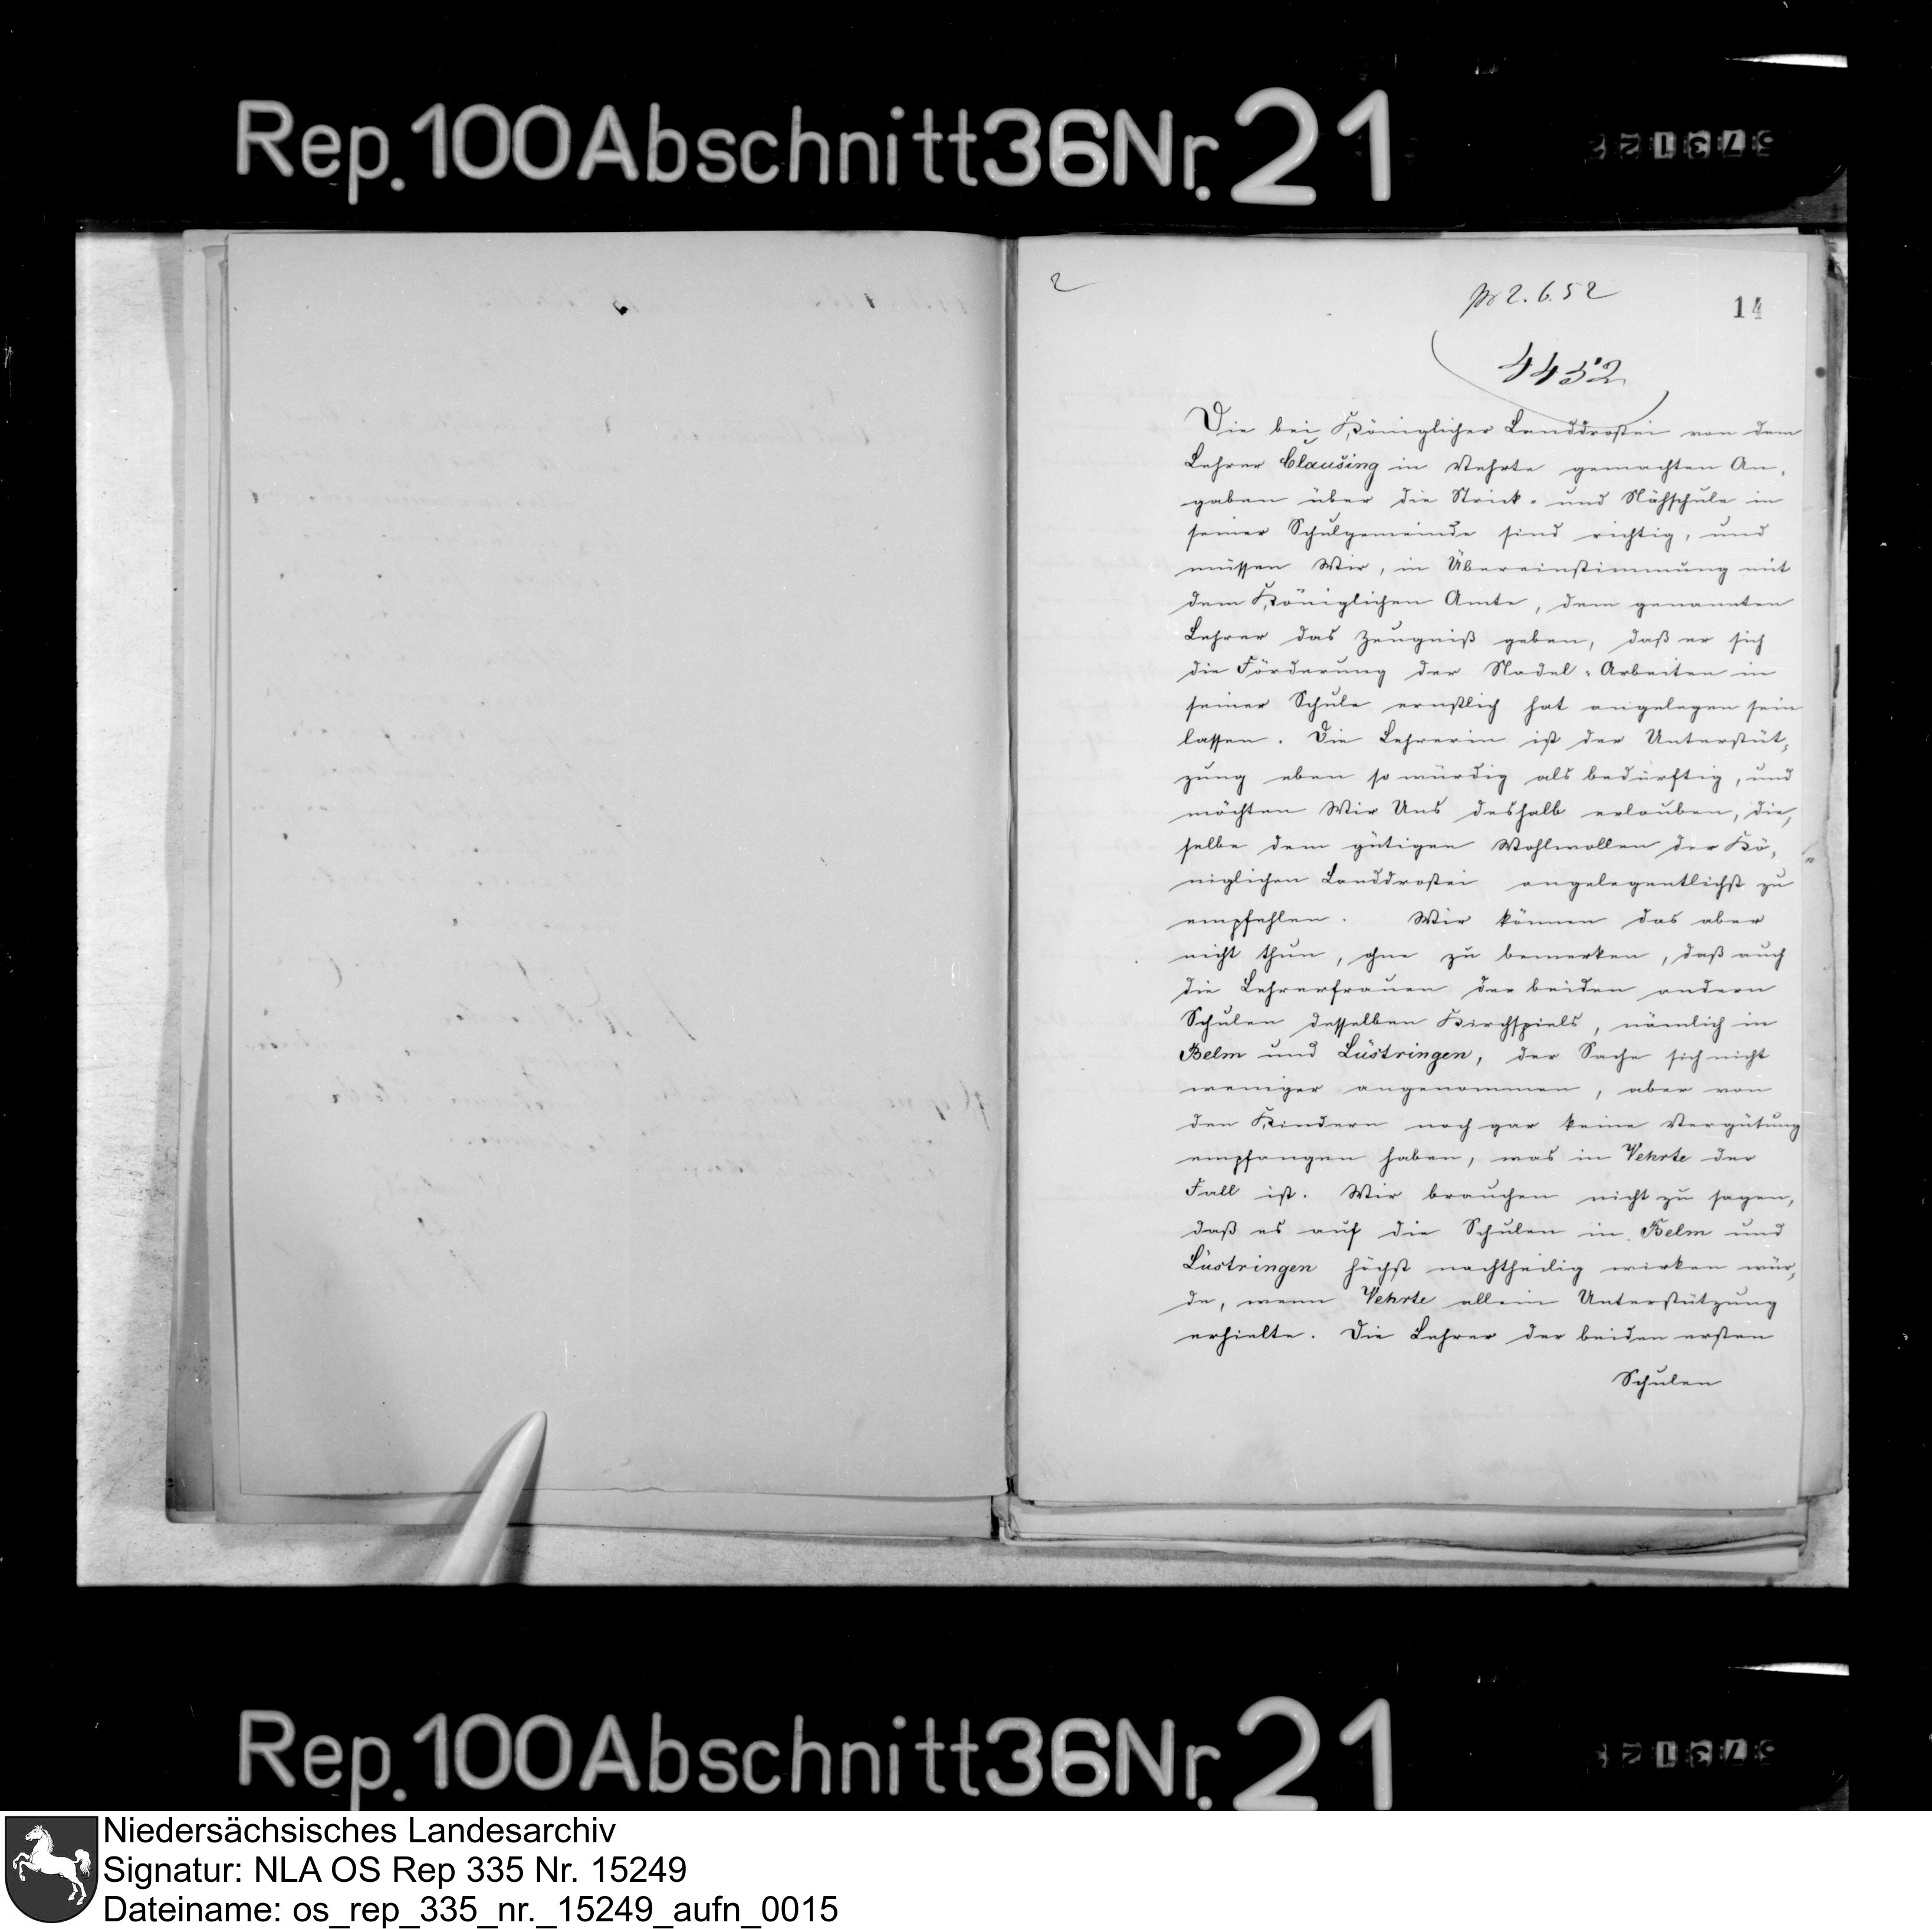 Rep. 100 Abschnitt 36 Nr. 21
2
pr 2. 6. 52
14
4452
Die bei Königlicher Landdrostei von dem
Lehrer Clausing in Vehrte gemachten An-
gaben über die Strick- und Nähschule in
seiner Schulgemeinde sind richtig, und
müssen Wir, in Übereinstimmung mit
dem Königlichen Amte, dem genannten
Lehrer das Zeugniß geben, daß er sich
die Förderung der Nadel-Arbeiten in
seiner Schule ernstlich hat angelegen sein
lassen. Die Lehrerin ist der Unterstüt-
zung eben so würdig als bedürftig, und
möchten Wir Uns deshalb erlauben, die-
selbe dem gütigen Wohlwollen der Kö-
niglichen Landdrostei angelegentlichst zu
empfehlen. Wir können das aber
nicht thun, ohne zu bemerken, daß auch
die Lehrerfrauen der beiden andern
Schulen desselben Kirchspiels, nämlich in
Belm und Lüstringen, der Sache sich nicht
weniger angenommen, aber von
den Kindern noch gar keine Vergütung
empfangen haben, was in Vehrte der
Fall ist. Wir brauchen nicht zu sagen,
daß es auf die Schulen in Belm und
Lüstringen höchst nachtheilig wirken wür-
de, wenn Vehrte allein Unterstützung
erhielte. Die Lehrer der beiden ersten
Schulen
Rep. 100 Abschnitt 36 Nr. 21
Niedersächsisches Landesarchiv
Signatur: NLA OS Rep 335 Nr. 15249
Dateiname: os_rep_335_nr._15249_aufn_0015